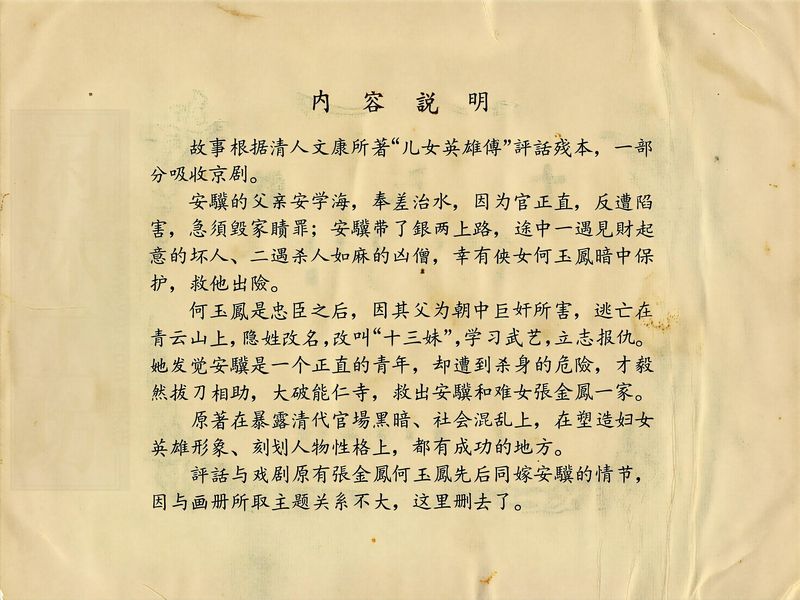 内容説明
故事根据清人文康所著“儿女英雄傳”評話残本，一部
分吸收京剧。
安驥的父亲安学海，奉差治水，因为官正直，反遭陷
害，急須毁家贖罪；安驥带了銀两上路，途中一遇見財起
意的坏人、二遇杀人如麻的凶僧，幸有俠女何玉鳳暗中保
护，救他出險。
何玉鳳是忠臣之后，因其父为朝中巨奸所害，逃亡在
青云山上，隐姓改名，改叫“十三妹”，学习武艺，立志报仇。
她发觉安驥是一个正直的青年，却遭到杀身的危險，才毅
然拔刀相助，大破能仁寺，救出安驥和难女張金鳳一家。
原著在暴露清代官場黑暗、社会混乱上，在塑造妇女
英雄形象、刻划人物性格上，都有成功的地方。
評話与戏剧原有張金鳳何玉鳳先后同嫁安驥的情节，
因与画册所取主题关系不大，这里删去了。